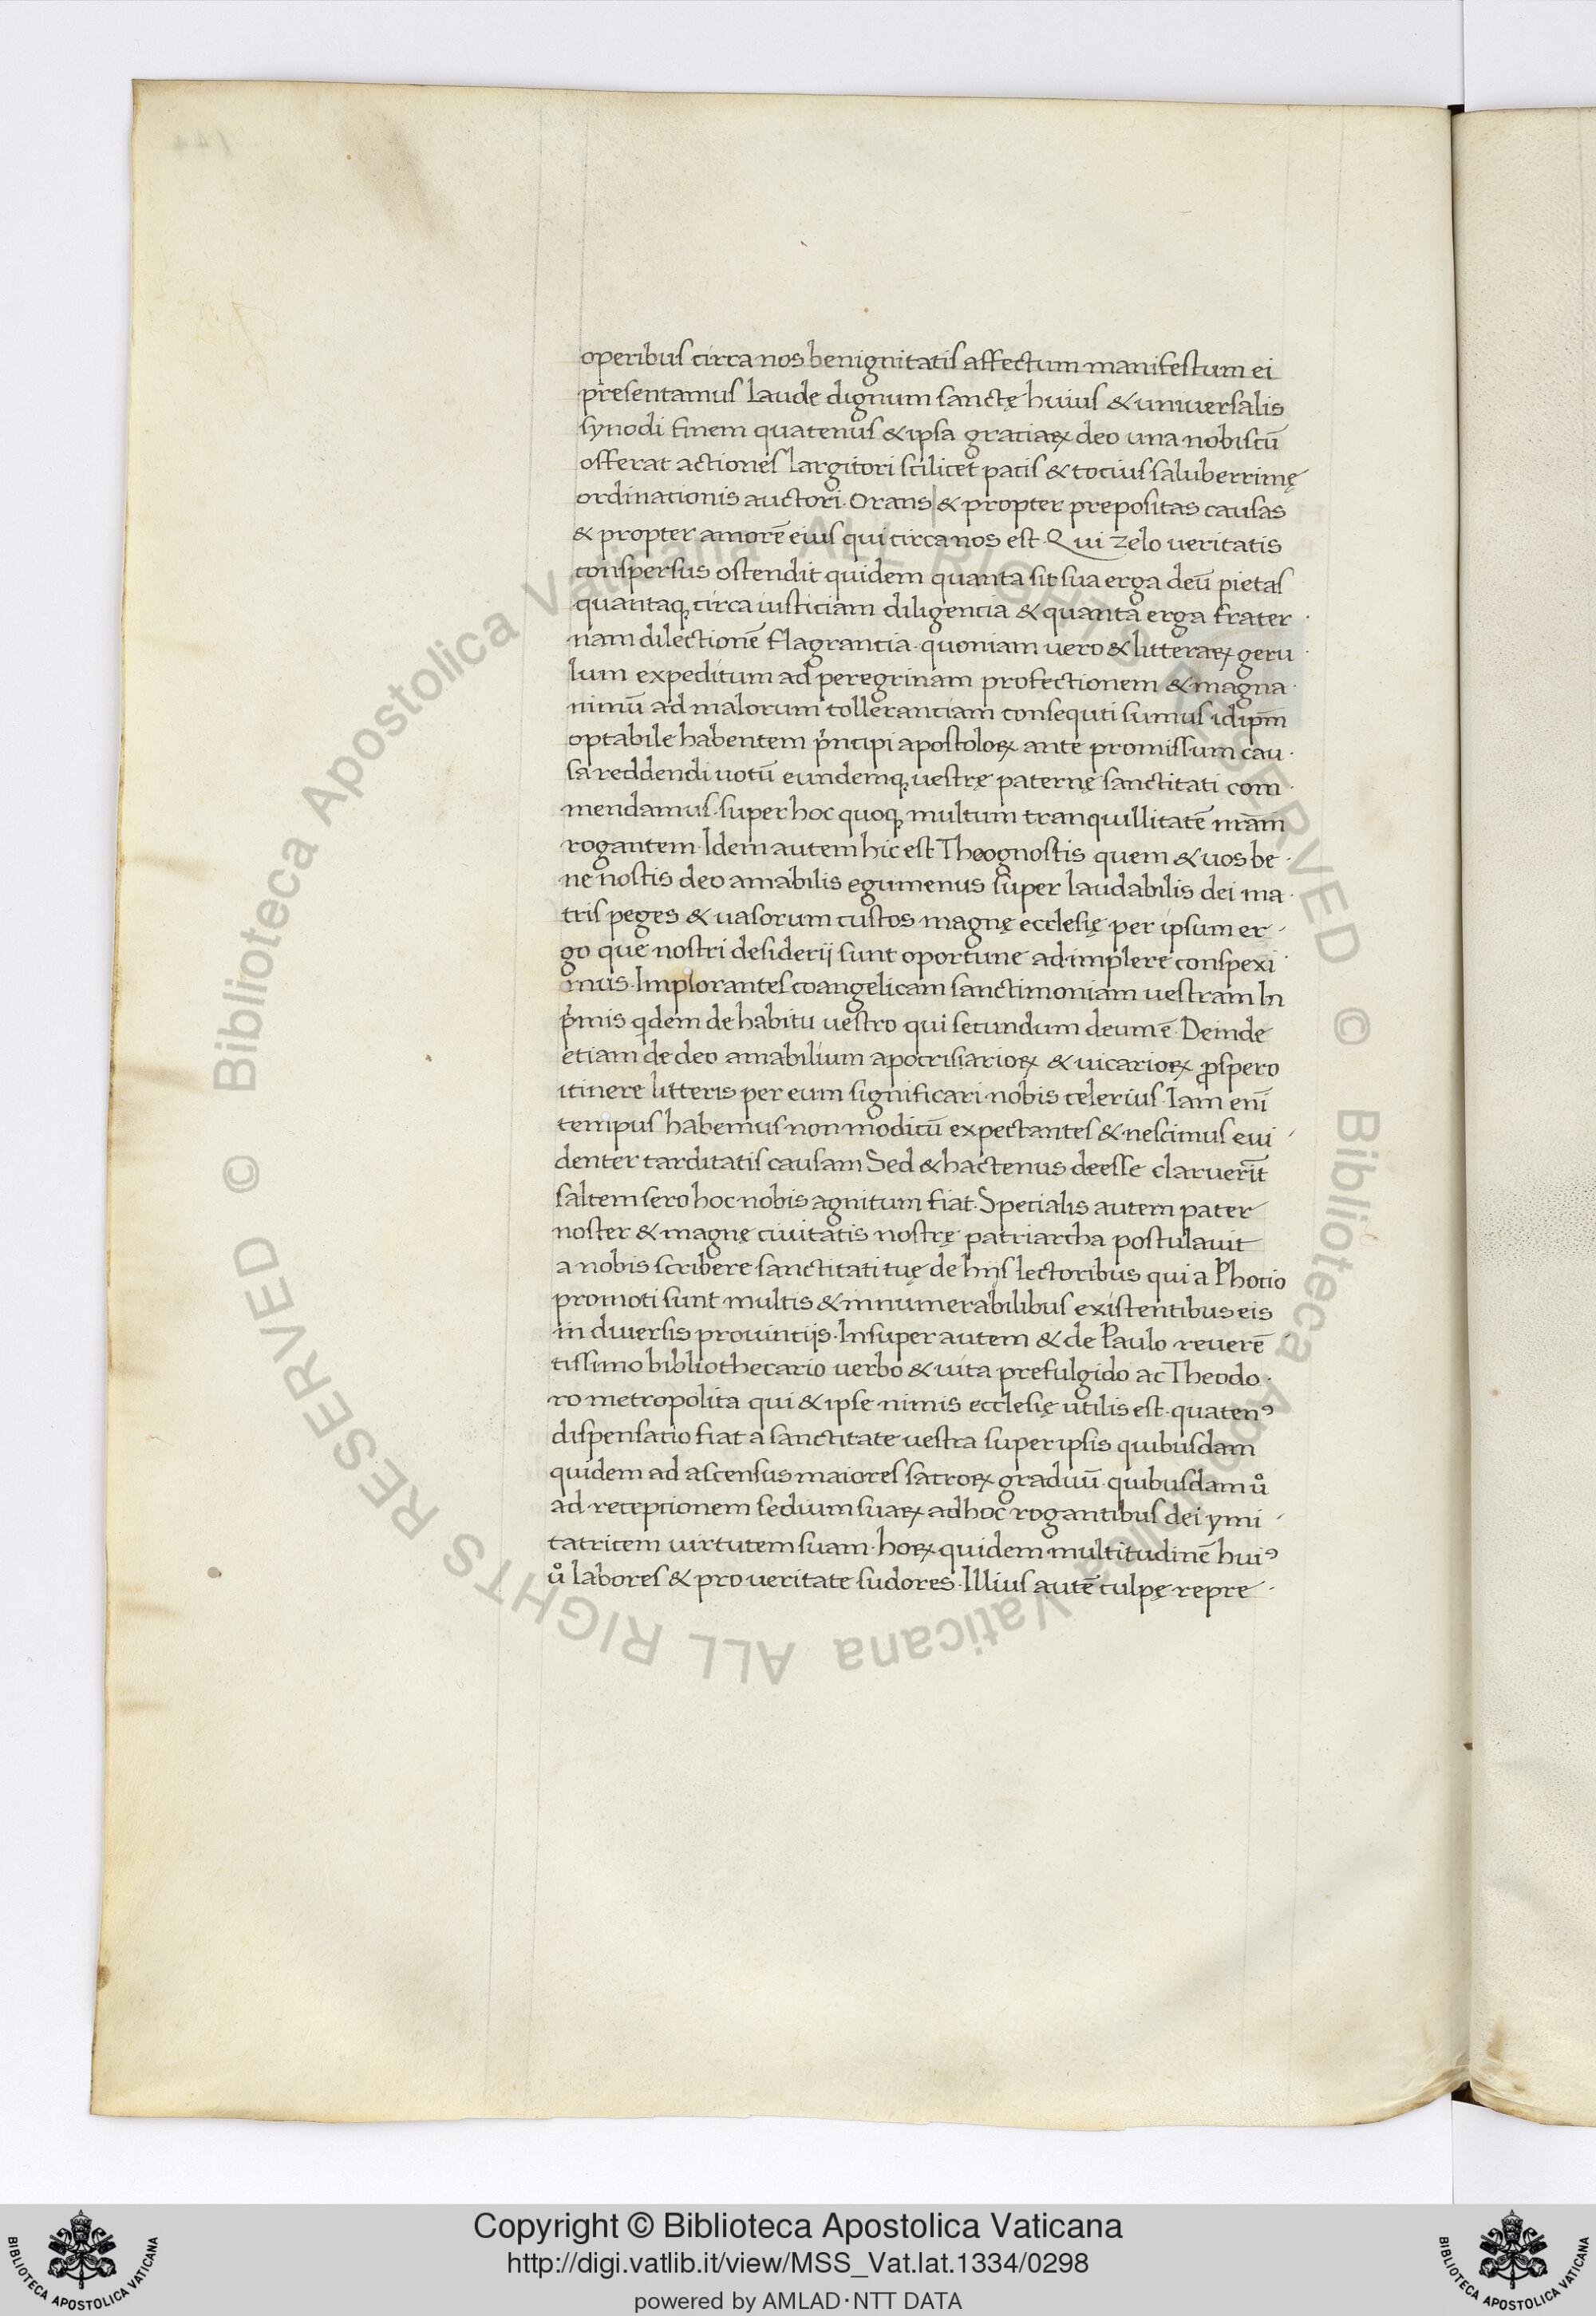 operibus circa nos benignitatis affectum manifestum ei
presentamus laude dignum sanctę huius & uniuersalis
synodi finem quatenus & ipsa gratiaꝝ deo una nobiscū
offerat actiones largitori scilicet pacis & tocius saluberrimę
ordinationis auctori. Orans & propter prepositas causas
& propter amorē eius qui circa nos est. Qui zelo ueritatis
conspersus ostendit quidem quanta sit sua erga deū pietas
quantaqꝫ circa iusticiam diligencia & quanta erga frater
nam dilectionē flagrancia. quoniam uero & litteraꝝ geru
lum expeditum ad peregrinam profectionem & magna
nimū ad malorum tollerantiam consequti sumus idipm̄
optabile habentem pͥncipi apostoloꝝ ante promissum cau
sa reddendi uotū eundemqꝫ uestrę paternę sanctitati com
mendamus. super hoc quoqꝫ multum tranquillitatē nr̄am
rogantem. Idem autem hic est Theognostis quem & uos be
ne nostis deo amabilis egumenus super laudabilis dei ma
tris peges & uasorum custos magnę ecclesię per ipsum er
go que nostri desiderij sunt oportune ad implere conspexi
mus. Implorantes coangelicam sanctimoniam uestram In
pͥmis qͥdem de habitu uestro qui secundum deum ē. Deinde
etiam de deo amabilium apocrisiarioꝝ & uicarioꝝ ꝓspero
itinere litteris per eum significari nobis celerius. Iam eni̅
tempus habemus non modicū expectantes & nescimus eui
denter tarditatis causam Sed & hactenus deesse claruerit̅
saltem sero hoc nobis agnitum fiat. Specialis autem pater
noster & magnę ciuitatis nostrę patriarcha postulauit
a nobis scribere sanctitati tuę de hijs lectoribus qui a Photio
promoti sunt multis & innumerabilibus existentibus eis
in diuersis prouintijs. Insuper autem & de Paulo reuerē
tissimo bibliothecario uerbo & uita prefulgido ac Theodo
ro metropolita qui & ipse nimis ecclesię utilis est. quatenꝰ
dispensatio fiat a sanctitate uestra super ipsis quibusdam
quidem ad ascensus maiores sacroꝝ graduū. quibusdam uͦ
ad receptionem sedium suaꝝ adhoc rogantibus dei ymi
tatricem uirtutem suam. hoꝝ quidem multitudinē huiꝰ
uͦ labores & pro ueritate sudores. Illius autē culpę repre
Copyright © Biblioteca Apostolica Vaticana
http://digi.vatlib.it/view/MSS_Vat.lat.1334/0298
powered by AMLAD·NTT DATA
BIBLIOTECA APOSTOLICA VATICANA
BIBLIOTECA APOSTOLICA VATICANA
© Biblioteca Apostolica Vaticana ALL RIGHTS RESERVED © Biblioteca Apostolica Vaticana ALL RIGHTS RESERVED